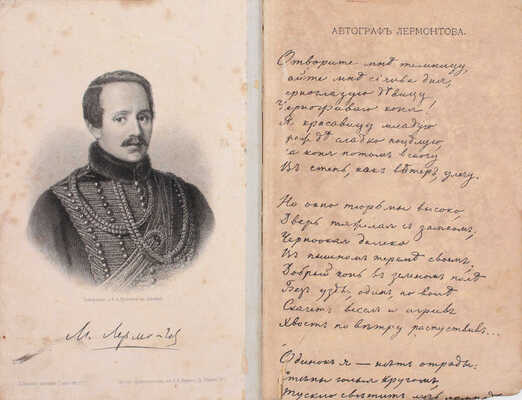 М. Лермонтов
АВТОГРАФЪ ЛЕРМОНТОВА.
Отворите мнѣ темницу,
айте мнѣ сіянье дня,
ерноглазую дѣвицу
Черногриваго коня!
Я красавицу младую
сладко поцѣлую,
а коня потомъ вскочу
Въ степь, какъ вѣтеръ, улечу.
Но окно тюрьмы высоко,
Дверь тяжелая съ замкомъ;
Черноокая далеко
Въ пышномъ теремѣ своемъ;
Добрый конь въ зеленомъ полѣ
Безъ узды, одинъ, по волѣ
Скачетъ веселъ и игривъ
Хвостъ по вѣтру распустивъ...
Одинокъ я — нѣтъ отрады:
тѣны голыя кругомъ,
тускло свѣтитъ лучъ лампады